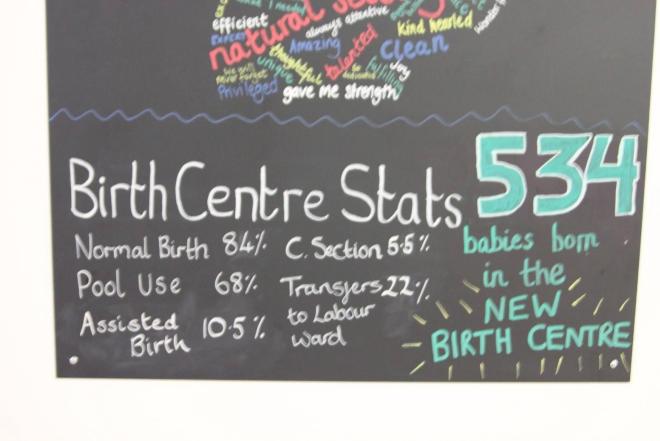 efficient
always attentive
kind hearted
natural
Amazing
talented
Clean
thoughtful
unique
Joy
we will
never forget
Privileged
gave me strength
Birth Centre Stats
534
babies born
in the
NEW
BIRTH CENTRE
Normal Birth 84%
C. Section 5.5%
Pool Use 68%
Transfers 22%
to Labour
Ward
Assisted
Birth 10.5%